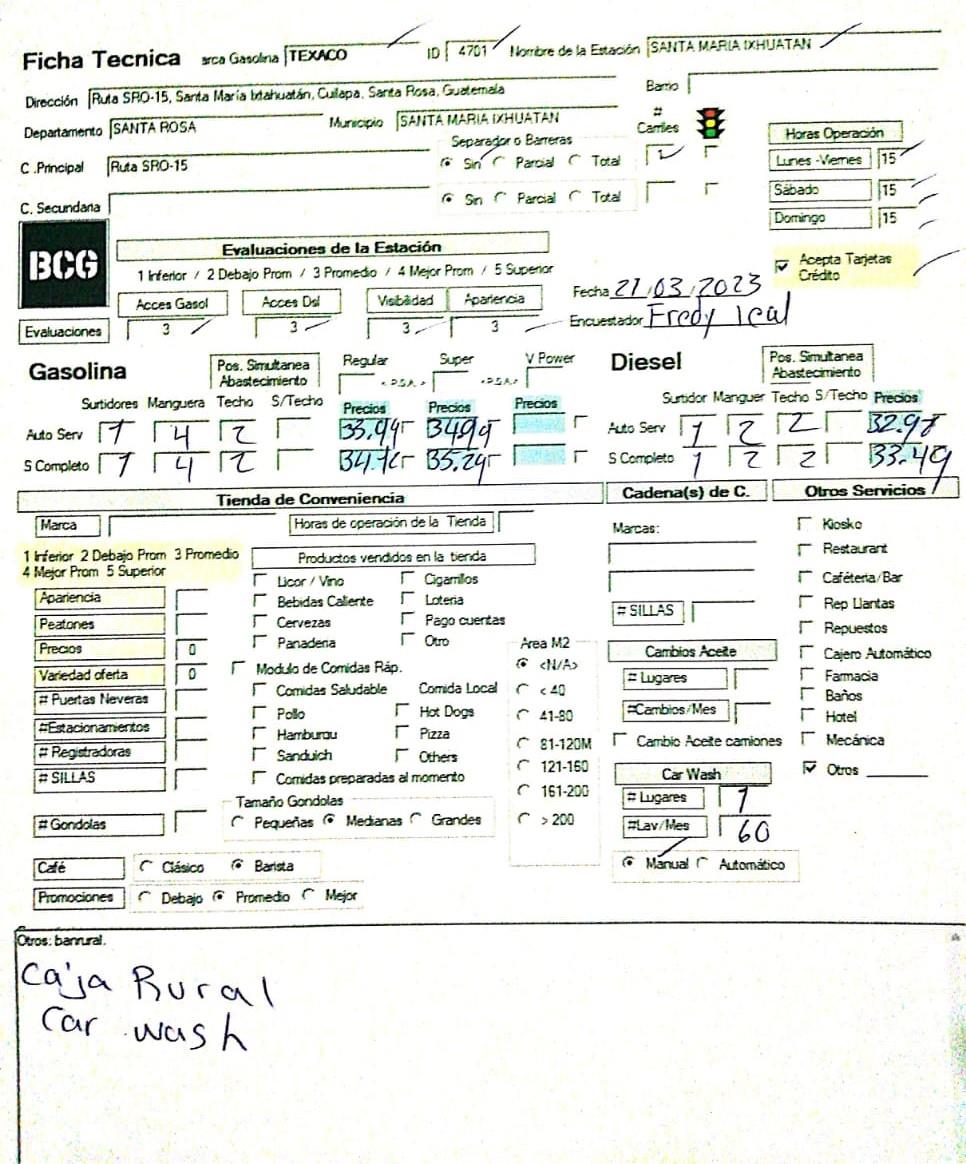 Ficha Tecnica arca Gasolina TEXACO ID 4701 Nombre de la Estación SANTA MARIA IXHUATAN
Dirección Ruta SRO-15, Santa María Ixtahuatán, Cuilapa, Santa Rosa, Guatemala Barrio
Departamento SANTA ROSA Municipio SANTA MARIA IXHUATAN # Carriles
Separador o Barreras Horas Operación
C .Principal Ruta SRO-15 Sin Parcial Total 2 Lunes -Viernes 15
C. Secundaria Sin Parcial Total Sábado 15
Domingo 15
BCG
Evaluaciones de la Estación
1 Inferior / 2 Debajo Prom / 3 Promedio / 4 Mejor Prom / 5 Superior
Acepta Tarjetas Crédito
Acces Gasol Acces Dsl Visibilidad Apariencia Fecha 21/03/2023
Evaluaciones 3 3 3 3 Encuestador Fredy Ical
Gasolina Pos. Simultanea Abastecimiento Regular Super V Power Diesel Pos. Simultanea Abastecimiento
<P.S.A.> <P.S.A.>
Surtidores Manguera Techo S/Techo Precios Precios Precios Surtidor Manguer Techo S/Techo Precios
Auto Serv 1 4 2 Auto Serv 1 2 2
S Completo 1 4 2 35.25 S Completo 1 2 2 33.49
Tienda de Conveniencia Cadena(s) de C. Otros Servicios
Marca Horas de operación de la Tienda Marcas: Kiosko
1 Inferior 2 Debajo Prom 3 Promedio Productos vendidos en la tienda Restaurant
4 Mejor Prom 5 Superior Licor / Vino Cigarrillos Caféteria/Bar
Apariencia Bebidas Caliente Loteria # SILLAS Rep Llantas
Peatones Cervezas Pago cuentas Repuestos
Precios 0 Panaderia Otro Area M2 Cambios Aceite Cajero Automático
Variedad oferta 0 Modulo de Comidas Ráp. <N/A> # Lugares Farmacia
# Puertas Neveras Comidas Saludable Comida Local < 40 Baños
#Estacionamientos Pollo Hot Dogs 41-80 #Cambios/Mes Hotel
# Registradoras Hamburgu Pizza 81-120M Cambio Aceite camiones Mecánica
# SILLAS Sanduich Others 121-160 Car Wash Otros
Comidas preparadas al momento 161-200 # Lugares 1
Tamaño Gondolas
# Gondolas Pequeñas Medianas Grandes > 200 #Lav/Mes 60
Café Clásico Barista Manual Automático
Promociones Debajo Promedio Mejor
Otros: banrural.
Caja Rural
Car wash